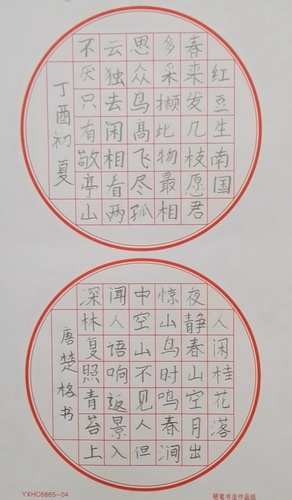 红豆生南国
春来发几枝愿君
多采撷此物最相
思众鸟高飞尽孤
云独去闲相看两
不厌只有敬亭山
丁酉初夏
人闲桂花落
夜静春山空月出
惊山鸟时鸣春涧
中空山不见人但
闻人语响返景入
深林复照青苔上
唐楚格书
YXHC6865-04
硬笔书法作品纸